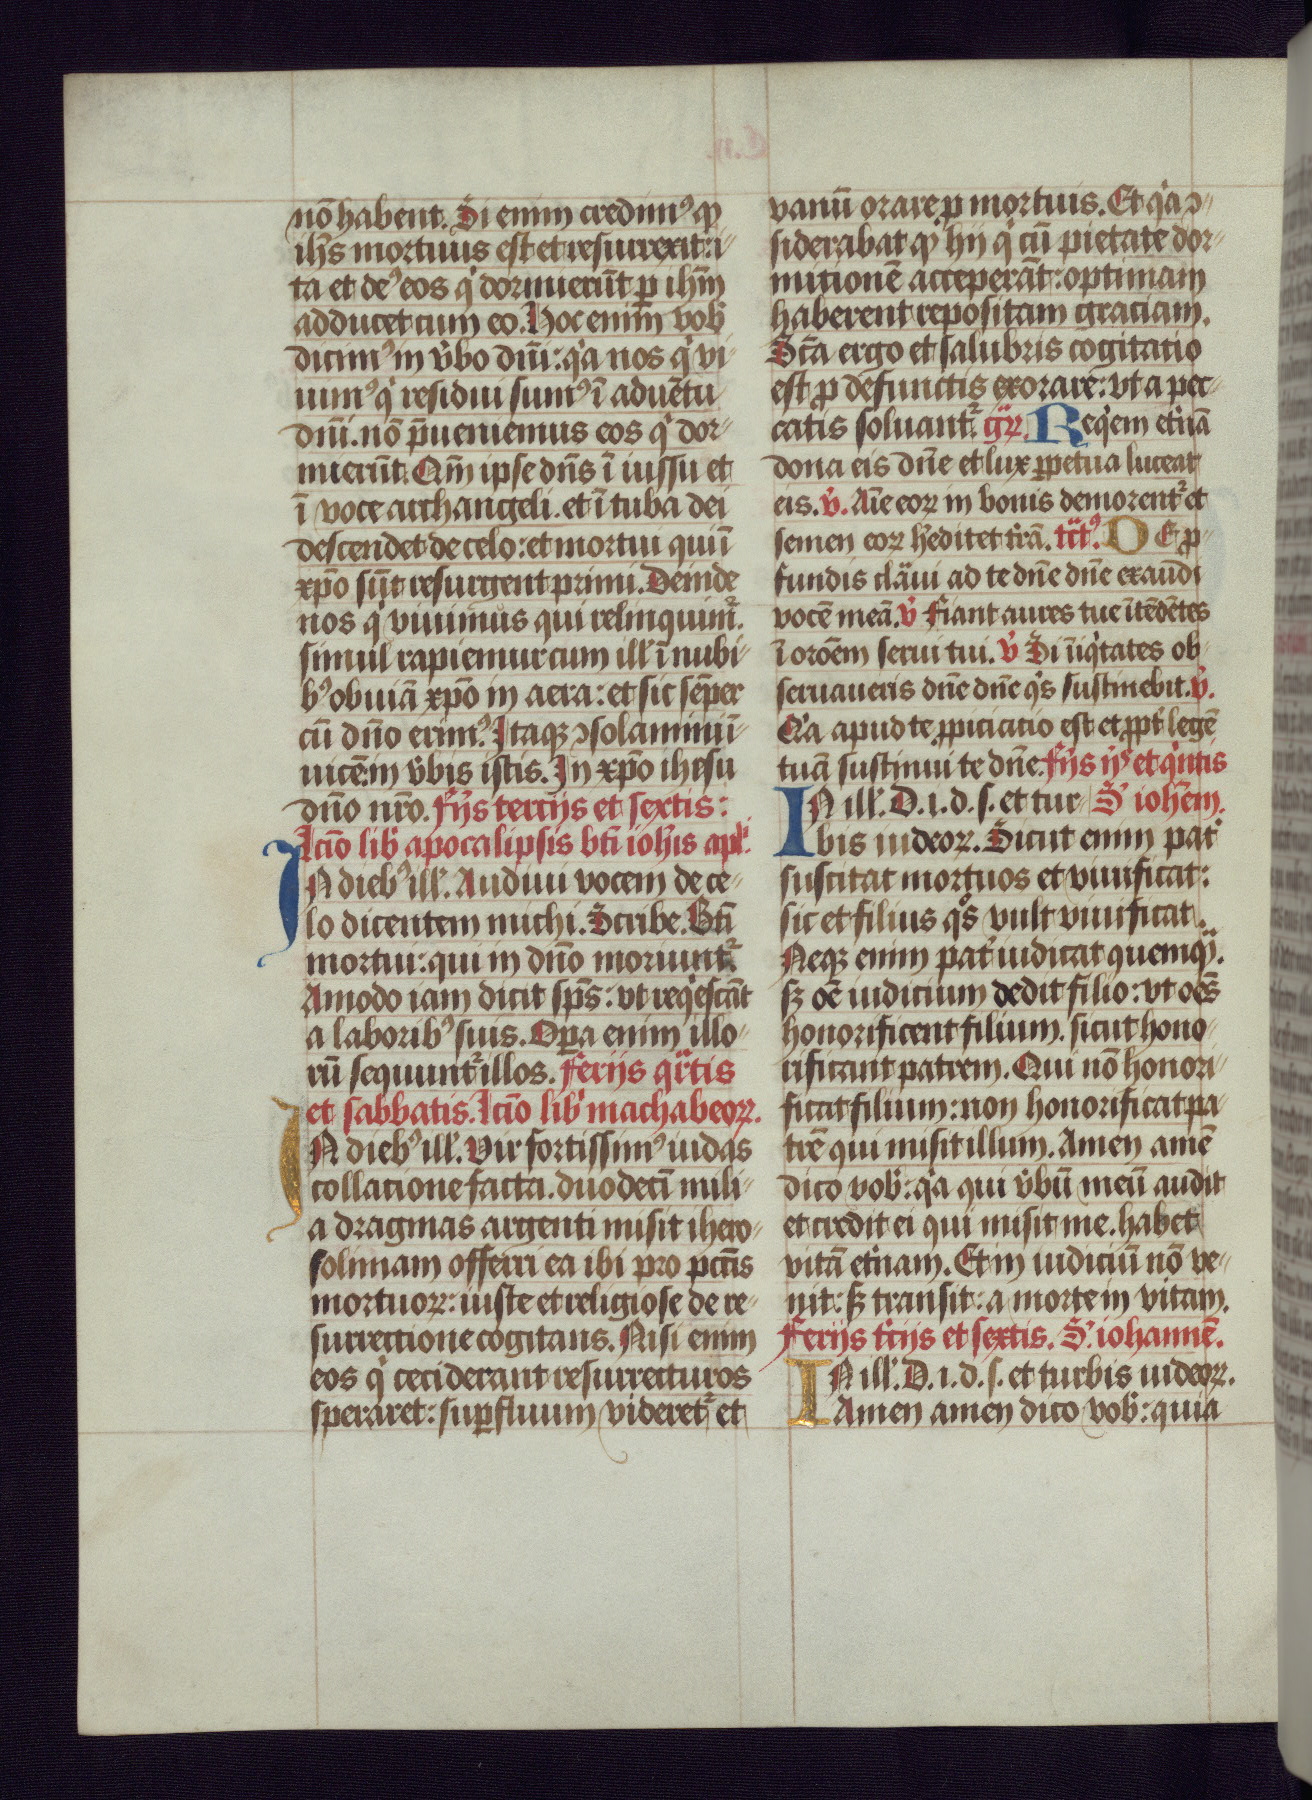 nō habent. Si enim credimꝰ qꝫ
ihs̄ mortuus est et resurrexit: i
ta et deꝰ eos qͥ dormierūt ꝑ ihm̄
adducet cum eo. Hoc enim vob̄
dicimꝰ in v̄bo dn̄i: qͥa nos qͥ vi
uimꝰ qͥ residui sumꝰ ī aduētu
dn̄i. nō p̄ueniemus eos qͥ dor-
mierūt. Qm̄ ipse dn̄s ī iussu et
ī voce archangeli. et ī tuba dei
descendet de celo: et mortui qui ī
xp̄o sūt resurgent primi. Deinde
nos qͥ viuimus qui relinquimͬ.
simul rapiemur cum ill' ī nubi-
bꝰ obuiā xp̄o in aera: et sic sēper
cū dn̄o erimꝰ. Itaqꝫ ꝯsolamini ī-
uicem v̄bis istis. In xp̄o ihesu
dn̄o nr̄o. Fijs tercijs et sextis:
Lcīo lib' apocalipsis bt̄i ioh̄is apl'i.
IN diebꝰ ill'. Audiui vocem de ce-
lo dicentem michi. Scribe. Bt̄i
mortui: qui in dn̄o moriuntͬ.
Amodo iam dicit sp̄s: vt reqͥescāt
a laboribꝰ suis. Oꝑa enim illo-
rū sequuntͬ illos. Ferijs qͣrtis
et sabbatis. Lcīo lib' machabeoꝝ.
IN diebꝰ ill'. Vir fortissimꝰ iudas
collatione facta. duodecī mili-
a dragmas argenti misit ihero-
solimam offerri ea ibi pro pctīs
mortuoꝝ: iuste et religiose de re-
surrectione cogitans. Nisi enim
eos qͥ ceciderant resurrecturos
speraret: suꝑfluum videretͬ et
vanū orare ꝓ mortuis. Et qͥa ꝯ-
siderabat qꝫ hij qͥ cū pietate dor-
mitionē acceperāt: optimam
haberent repositam graciam.
Sct̄a ergo et salubris cogitatio
est ꝓ defunctis exorare: vt a pec-
catis soluantͬ. gr̄. Reqͥem et'nā
dona eis dn̄e et lux ꝑpetua luceat
eis. v̄. Aīe eoꝝ in bonis demorentͬ et
semen eoꝝ h'editet t'rā. tc̄tꝰ. DE ꝓ-
fundis clāui ad te dn̄e dn̄e exaudi
vocē meā. v̄ Fiant aures tue ītēdētes
ī orōem serui tui. v̄ Si īiqͥtates ob-
seruaueris dn̄e dn̄e qͥs sustinebit. v̄.
Qͥa apud te ꝓpiciatio est et ꝓpt' legē
tuā sustinui te dn̄e. Fijs ijˢ et qͥntis
IN ill'. D. i. d. s. et tur- S' ioh̄em.
bis iudeoꝝ. Sicut enim pat'
suscitat mortuos et viuificat:
sic et filius qͦs vult viuificat.
Neqꝫ enim pat' iudicat quemqͣ.
sꝫ oē iudicium dedit filio: vt oēs
honorificent filium. sicut hono-
rificant patrem. Qui nō honori-
ficat filium: non honorificat pa-
trē qui misit illum. Amen amē
dico vob̄: qͥa qui v̄bū meū audit
et credit ei qui misit me. habet
vitā et'nam. Et in iudiciū nō ve-
nit: sꝫ transit: a morte in vitam.
Ferijs t'cijs et sextis. S' iohannē.
IN ill'. D. i. d. s. et turbis iudeoꝝ.
Amen amen dico vob̄: quia